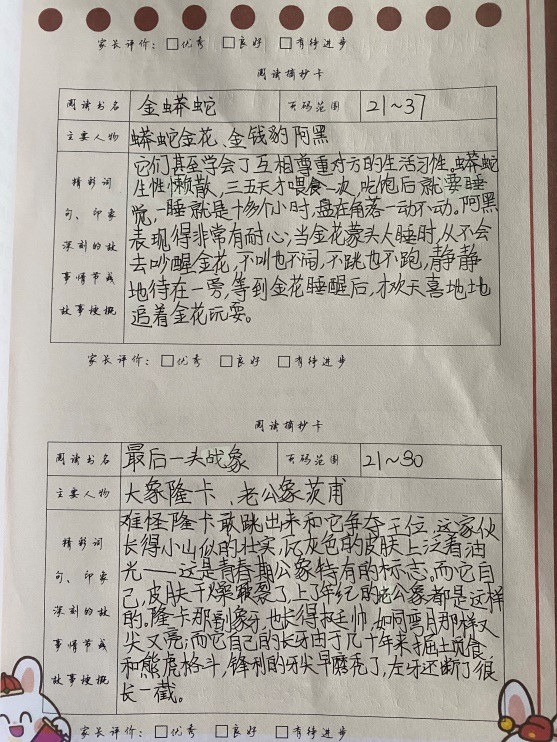 家长评价：□优秀 □良好 □有待进步
阅读摘抄卡
阅读书名 金蟒蛇 页码范围 21~37
主要人物 蟒蛇金花、金钱豹阿黑
精彩词句、印象深刻的故事情节或故事梗概
它们甚至学会了互相尊重对方的生活习性。蟒蛇
生性懒散，三五天才喂食一次，吃饱后就要睡
觉，一睡就是十多个小时，盘在角落一动不动。阿黑
表现得非常有耐心；当金花蒙头大睡时，从不会
去吵醒金花，不叫也不闹，不跳也不跑，静静
地待在一旁，等到金花睡醒后，才欢天喜地地
追着金花玩耍。
家长评价：□优秀 □良好 □有待进步
阅读摘抄卡
阅读书名 最后一头战象 页码范围 21~30
主要人物 大象隆卡、老公象茨甫
精彩词句、印象深刻的故事情节或故事梗概
难怪隆卡敢跳出来和它争夺王位，这家伙
长得小山似的壮实，瓦灰色的皮肤上泛着油
光——这是青春期公象特有的标志。而它自
己，皮肤干燥皲裂了，上了年纪的老公象都是这样
的。隆卡那副象牙，也长得挺帅，如同弯月那样又
尖又亮；而它自己的长牙由于几十年来掘土觅食
和熊虎格斗，锋利的牙尖早磨秃了，左牙还断了很
长一截。
家长评价：□优秀 □良好 □有待进步